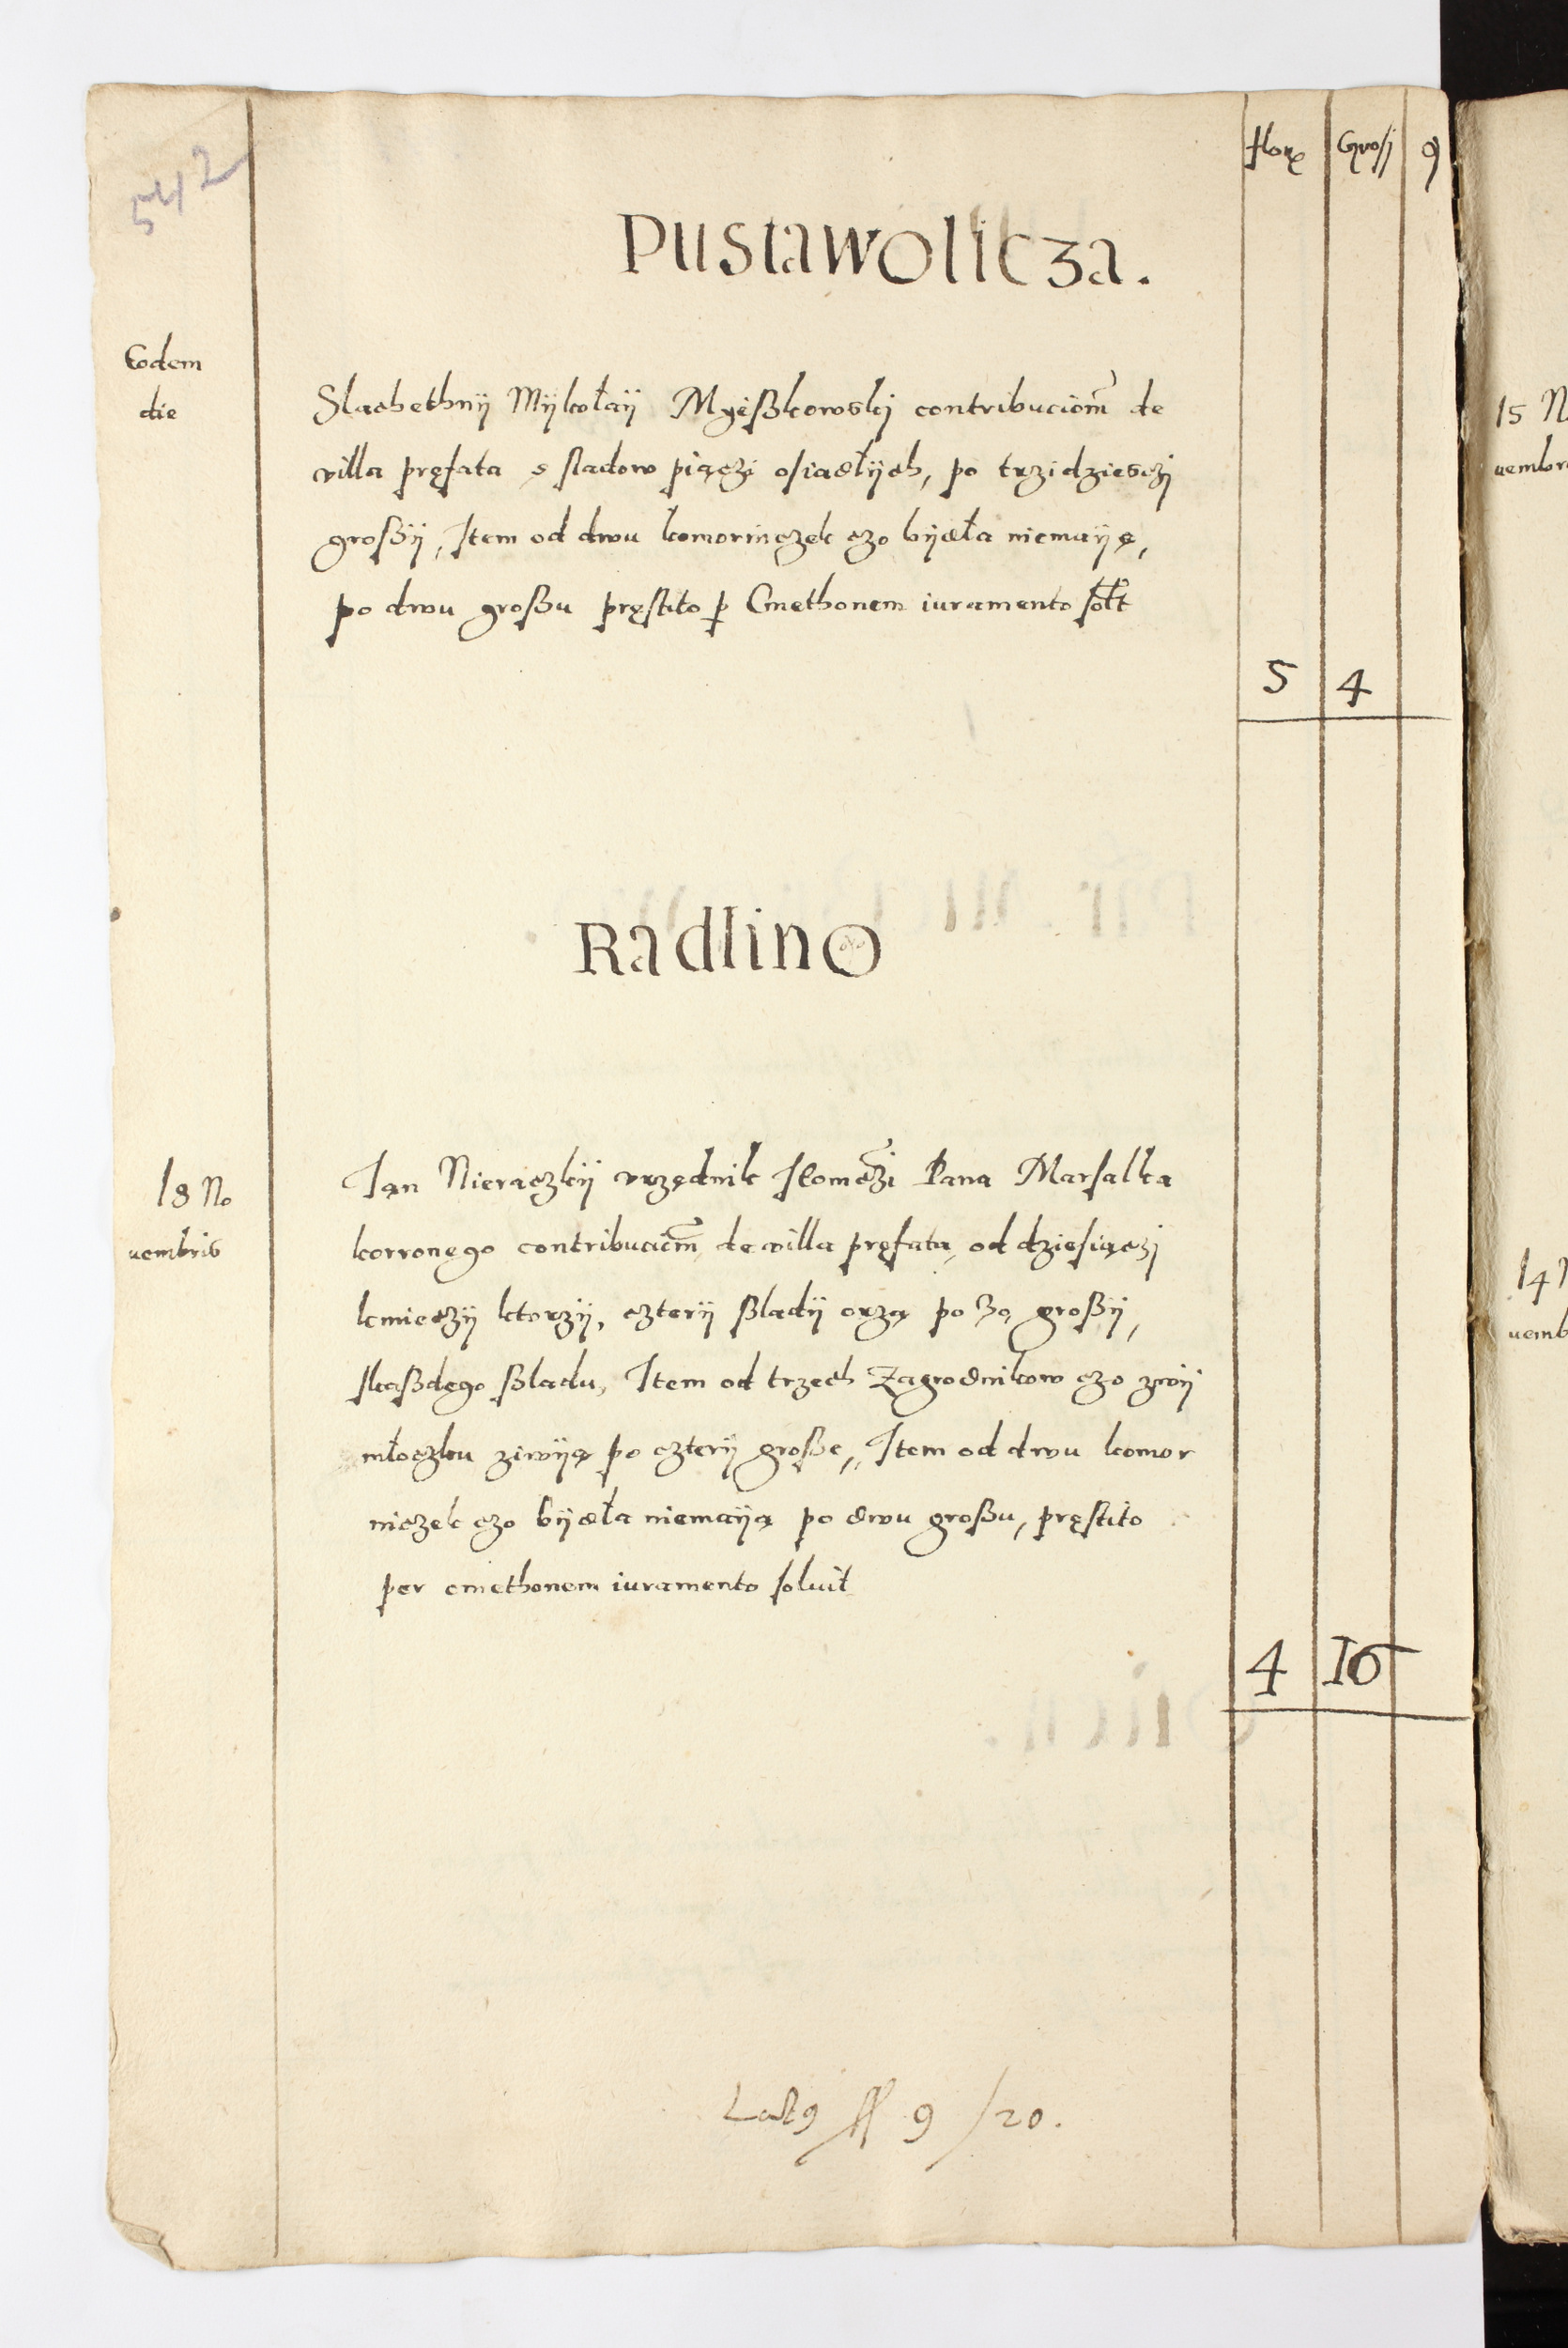 542
flore Grosj 9
Pustawolicza.
Eodem
die
Slachethnÿ Mÿkołaÿ Mÿeßkowskj contribucionem de
villa pręfata s sladow piączi osiadłÿch, po trzidzieschj
großÿ, Item od dwu komorniczek czo bÿdła niemaÿą,
po dwu großu pręstito p Cmethonem iuramento solt
5 4
Radlino
18 No
uembris
Jan Nieraczkÿ vrzędnik Pana Marsalka
korronego contribucionem de villa pręfata, od dziesiączj
kmieczÿ ktorzÿ, czterÿ ßladÿ orzą po 30 großÿ,
skaßdego ßladu, Item od trzech Zagrodnikow czo zwÿ
młoczku ziwÿą po czterÿ große, Item od dwu komor
niczek czo bÿdła niemaÿą po dwu großu, pręstito
per cmethonem iuramento soluit
4 16
Lat9 ff 9 /20.
15 N
uembr
14 N
uemb